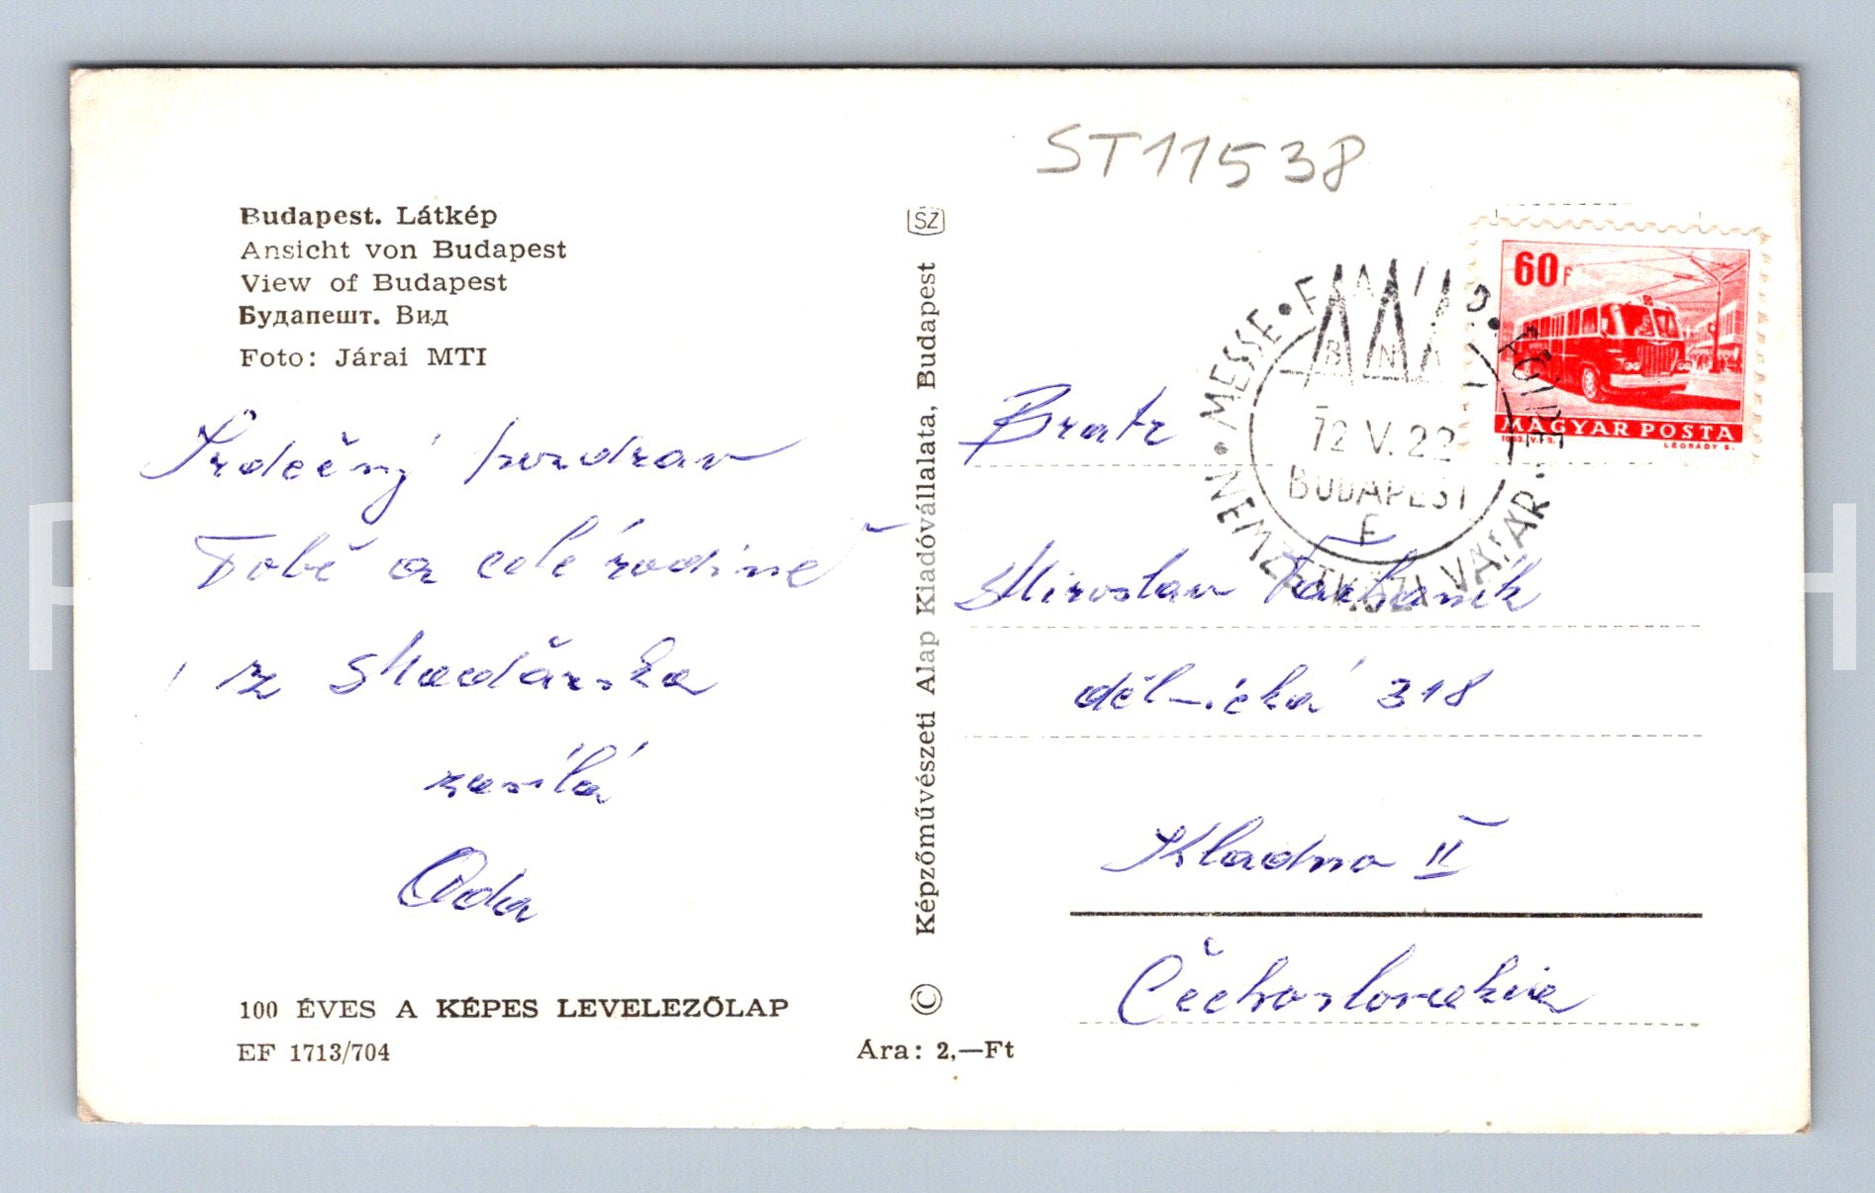 ST11538
Budapest. Látkép
Ansicht von Budapest
View of Budapest
Будапешт. Вид
Foto: Járai MTI
Srdečný pozdrav
Tobě a celé rodině
z Maďarska
zasílá
Oda
100 ÉVES A KÉPES LEVELEZŐLAP
EF 1713/704
SZ
Képzőművészeti Alap Kiadóvállalata, Budapest
©
Ára: 2,—Ft
60f
MAGYAR POSTA
LÉGRÁDY S.
MESSE • NEMZETKÖZI VÁSÁR •
BNV
72 V. 22
BUDAPEST
Bratr
Miroslav
dělnická 318
Kladno II
Čechoslovakia